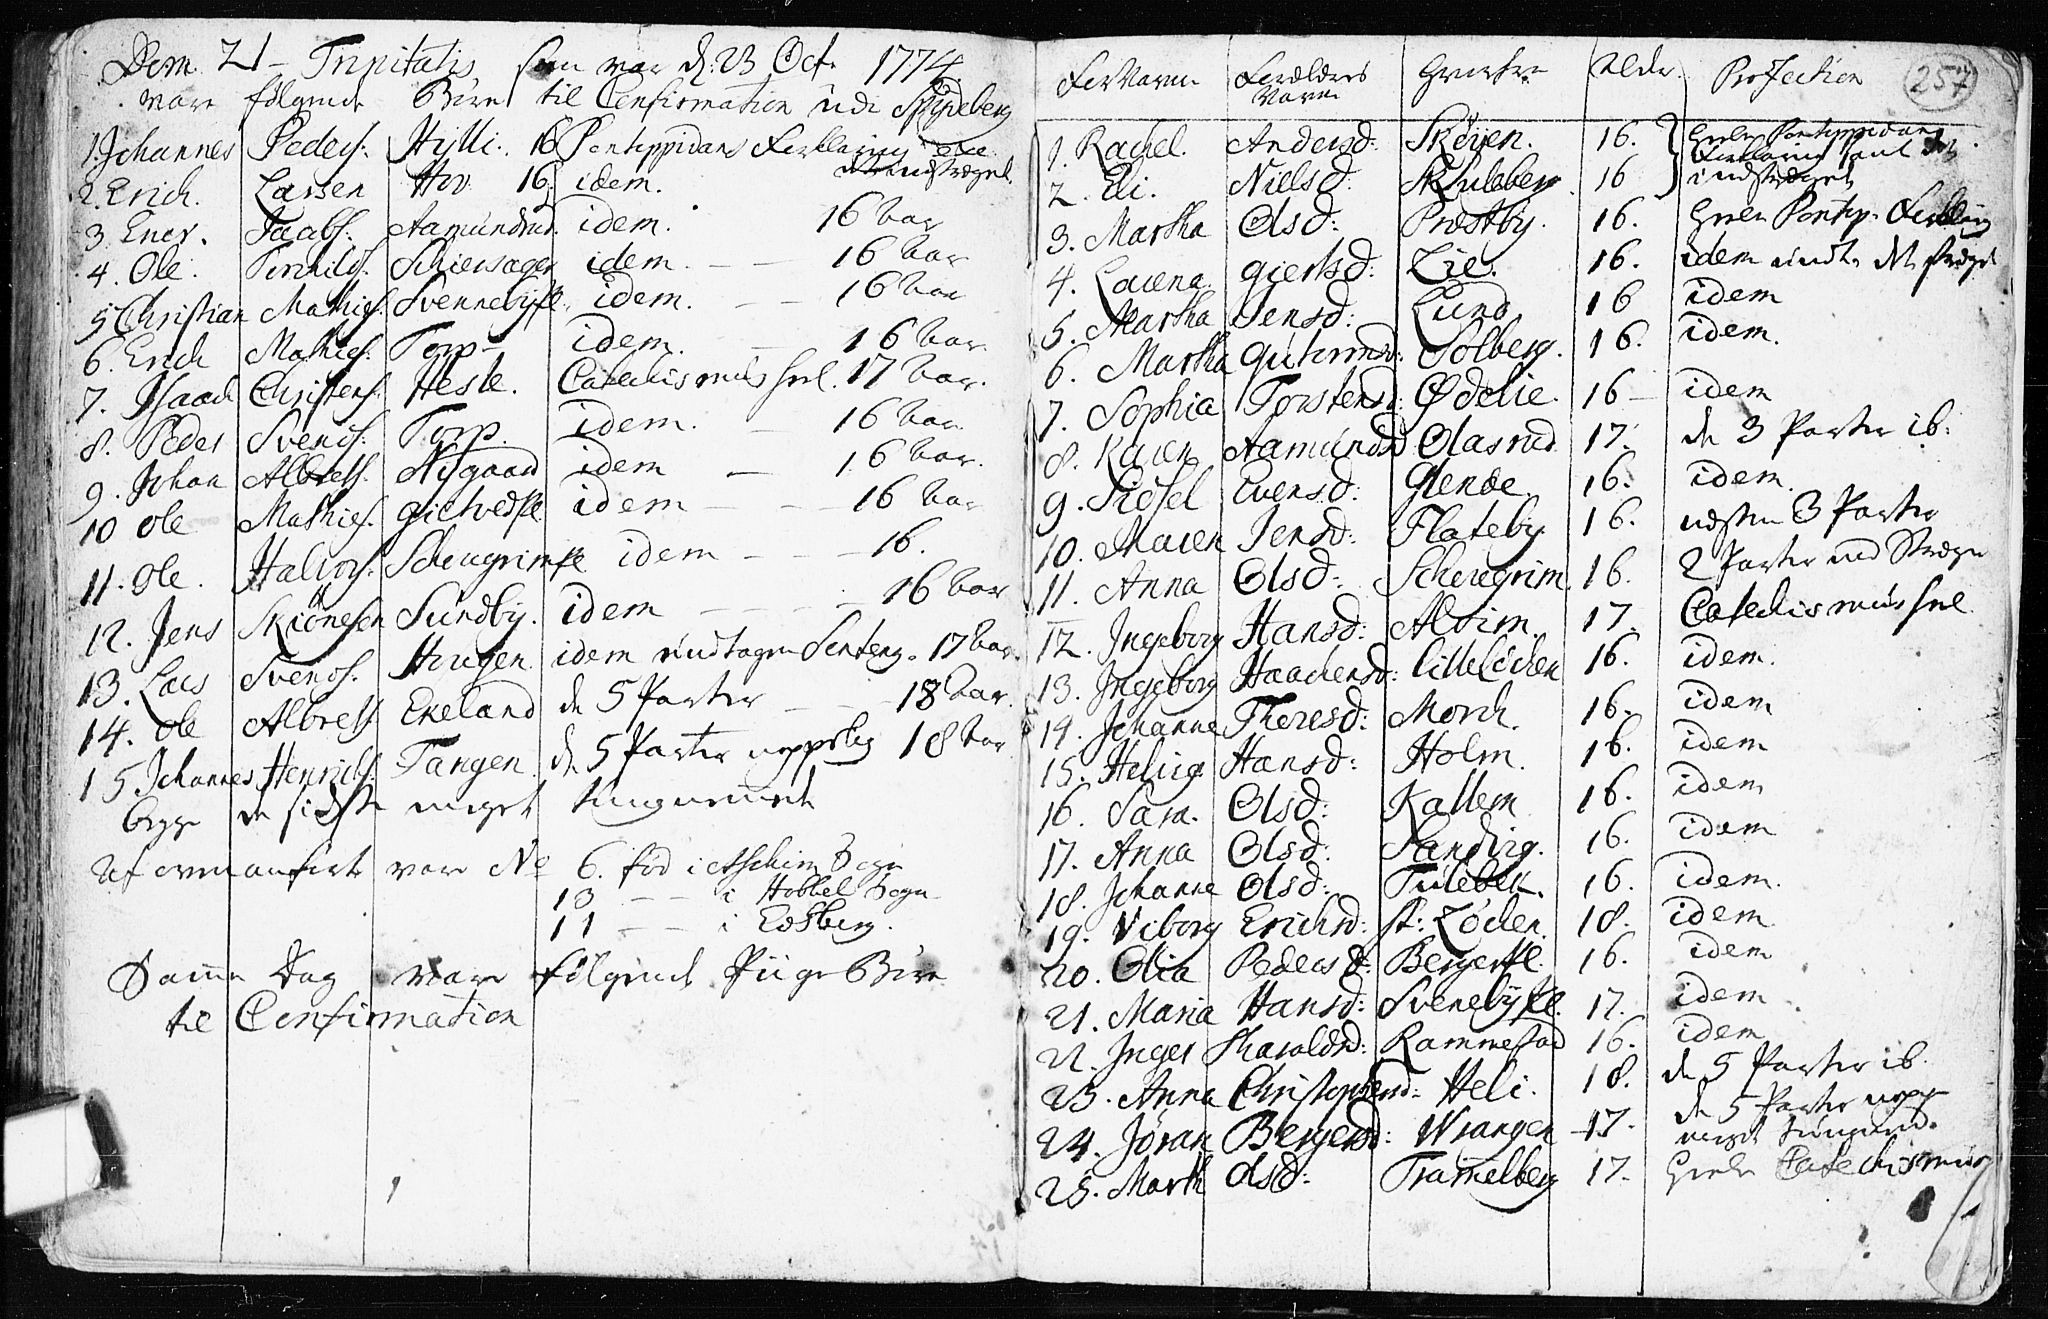 Dom. 21 - Trinitatis som var d: 23 Oct. 1774
vare følgende Børn til Confirmation udi Spydeberg
1. Johannes Peders: Hylli. 16 Pontoppidans Forklaring
2. Erich. Larsen Hov 16. idem.
3. Ener. Jacobs: Aamundrud. idem. 16 Aar
4. Ole. Torchilds. Schiersager idem. 16 Aar
5 Christian Mathies. Svennebye idem. 16 Aar
6. Erich Mathies. Torp idem. 16 Aar.
7. Isaach Christens. Hesle. Catechismus heel. 17 Aar.
8. Peder Svends: Torp. idem. 16 Aar.
9. Johan Albrets. Nygaard idem 16 Aar.
10 Ole Mathies. Gietvedse idem 16 Aar
11. Ole. Halvors. Schougrimse idem 16.
12. Jens Skiønesen Sundby. idem 16 Aar
13. Lars Svends. Hougen idem undtagen 17 Aar.
14. Ole Albrets Ekeland de 5 Parter 18 Aar.
15. Johannes Henrichs. Tangen de 5 Parter 18 Aar
begge de sidste meget
Af ovenanførte vare No 6. fød i Aschim Sogn
13 i Hobbel Sogn
11 i Edsberg.
Samme Dag vare følgende Piige Børn
til Confirmation
257
For Navne Forældres Navne Alder. Profection
1. Rachel. Andersd: Skøyen. 16. heele Pontoppidans Forklaring samt
2. Eli. Nielsd: Skuleberg. 16 indstreget
3. Martha Olsd: Præstby. 16. heele Pontop. Forklaring
4. Lovena. Giertsd: Lie. 16. idem det streget
5. Martha Jensd: Lund 16 idem
6. Martha Gutormsd: Solberg. 16. idem.
7. Sophia Torstensd: Ødelie. 16 idem
8. Karen Aamundsd Olasrud 17. de 3 Parter ib:
9. Sidsel Evensd: Glende 16. idem.
10. Maren Jensd: Flateby 16. næsten 3 Parter
11. Anna Olsd: Schougrim 16. 2 Parter
12. Ingeborg Hansd: Alvim. 17. Catechismus heel
13. Ingeborg Haachensd: Lilleløchen 16. idem.
14. Johanne Thoresd: Morch. 16. idem
15. Helvig Hansd: Holm. 16. idem
16. Sara. Olsd: Kallem 16. idem
17. Anna Olsd. Sandvig. 16. idem
18. Johanne Olsd: Tulebek. 16. idem.
19. Viborg Erichsd: st: Løchen. 18. idem
20. Olia Pedersd: Bergerse. 16. idem
21. Maria Hansd: Svenebyse. 17. idem
22. Inger Haraldsd: Rammestad 16. idem
23. Anna Christophersd: Heli. 18. de 5 Parter ib.
24. Jøran Bergersd: Wrangen 17. de 5 Parter
25. Marth Olsd: Tramelberg 17. heele Catechismus